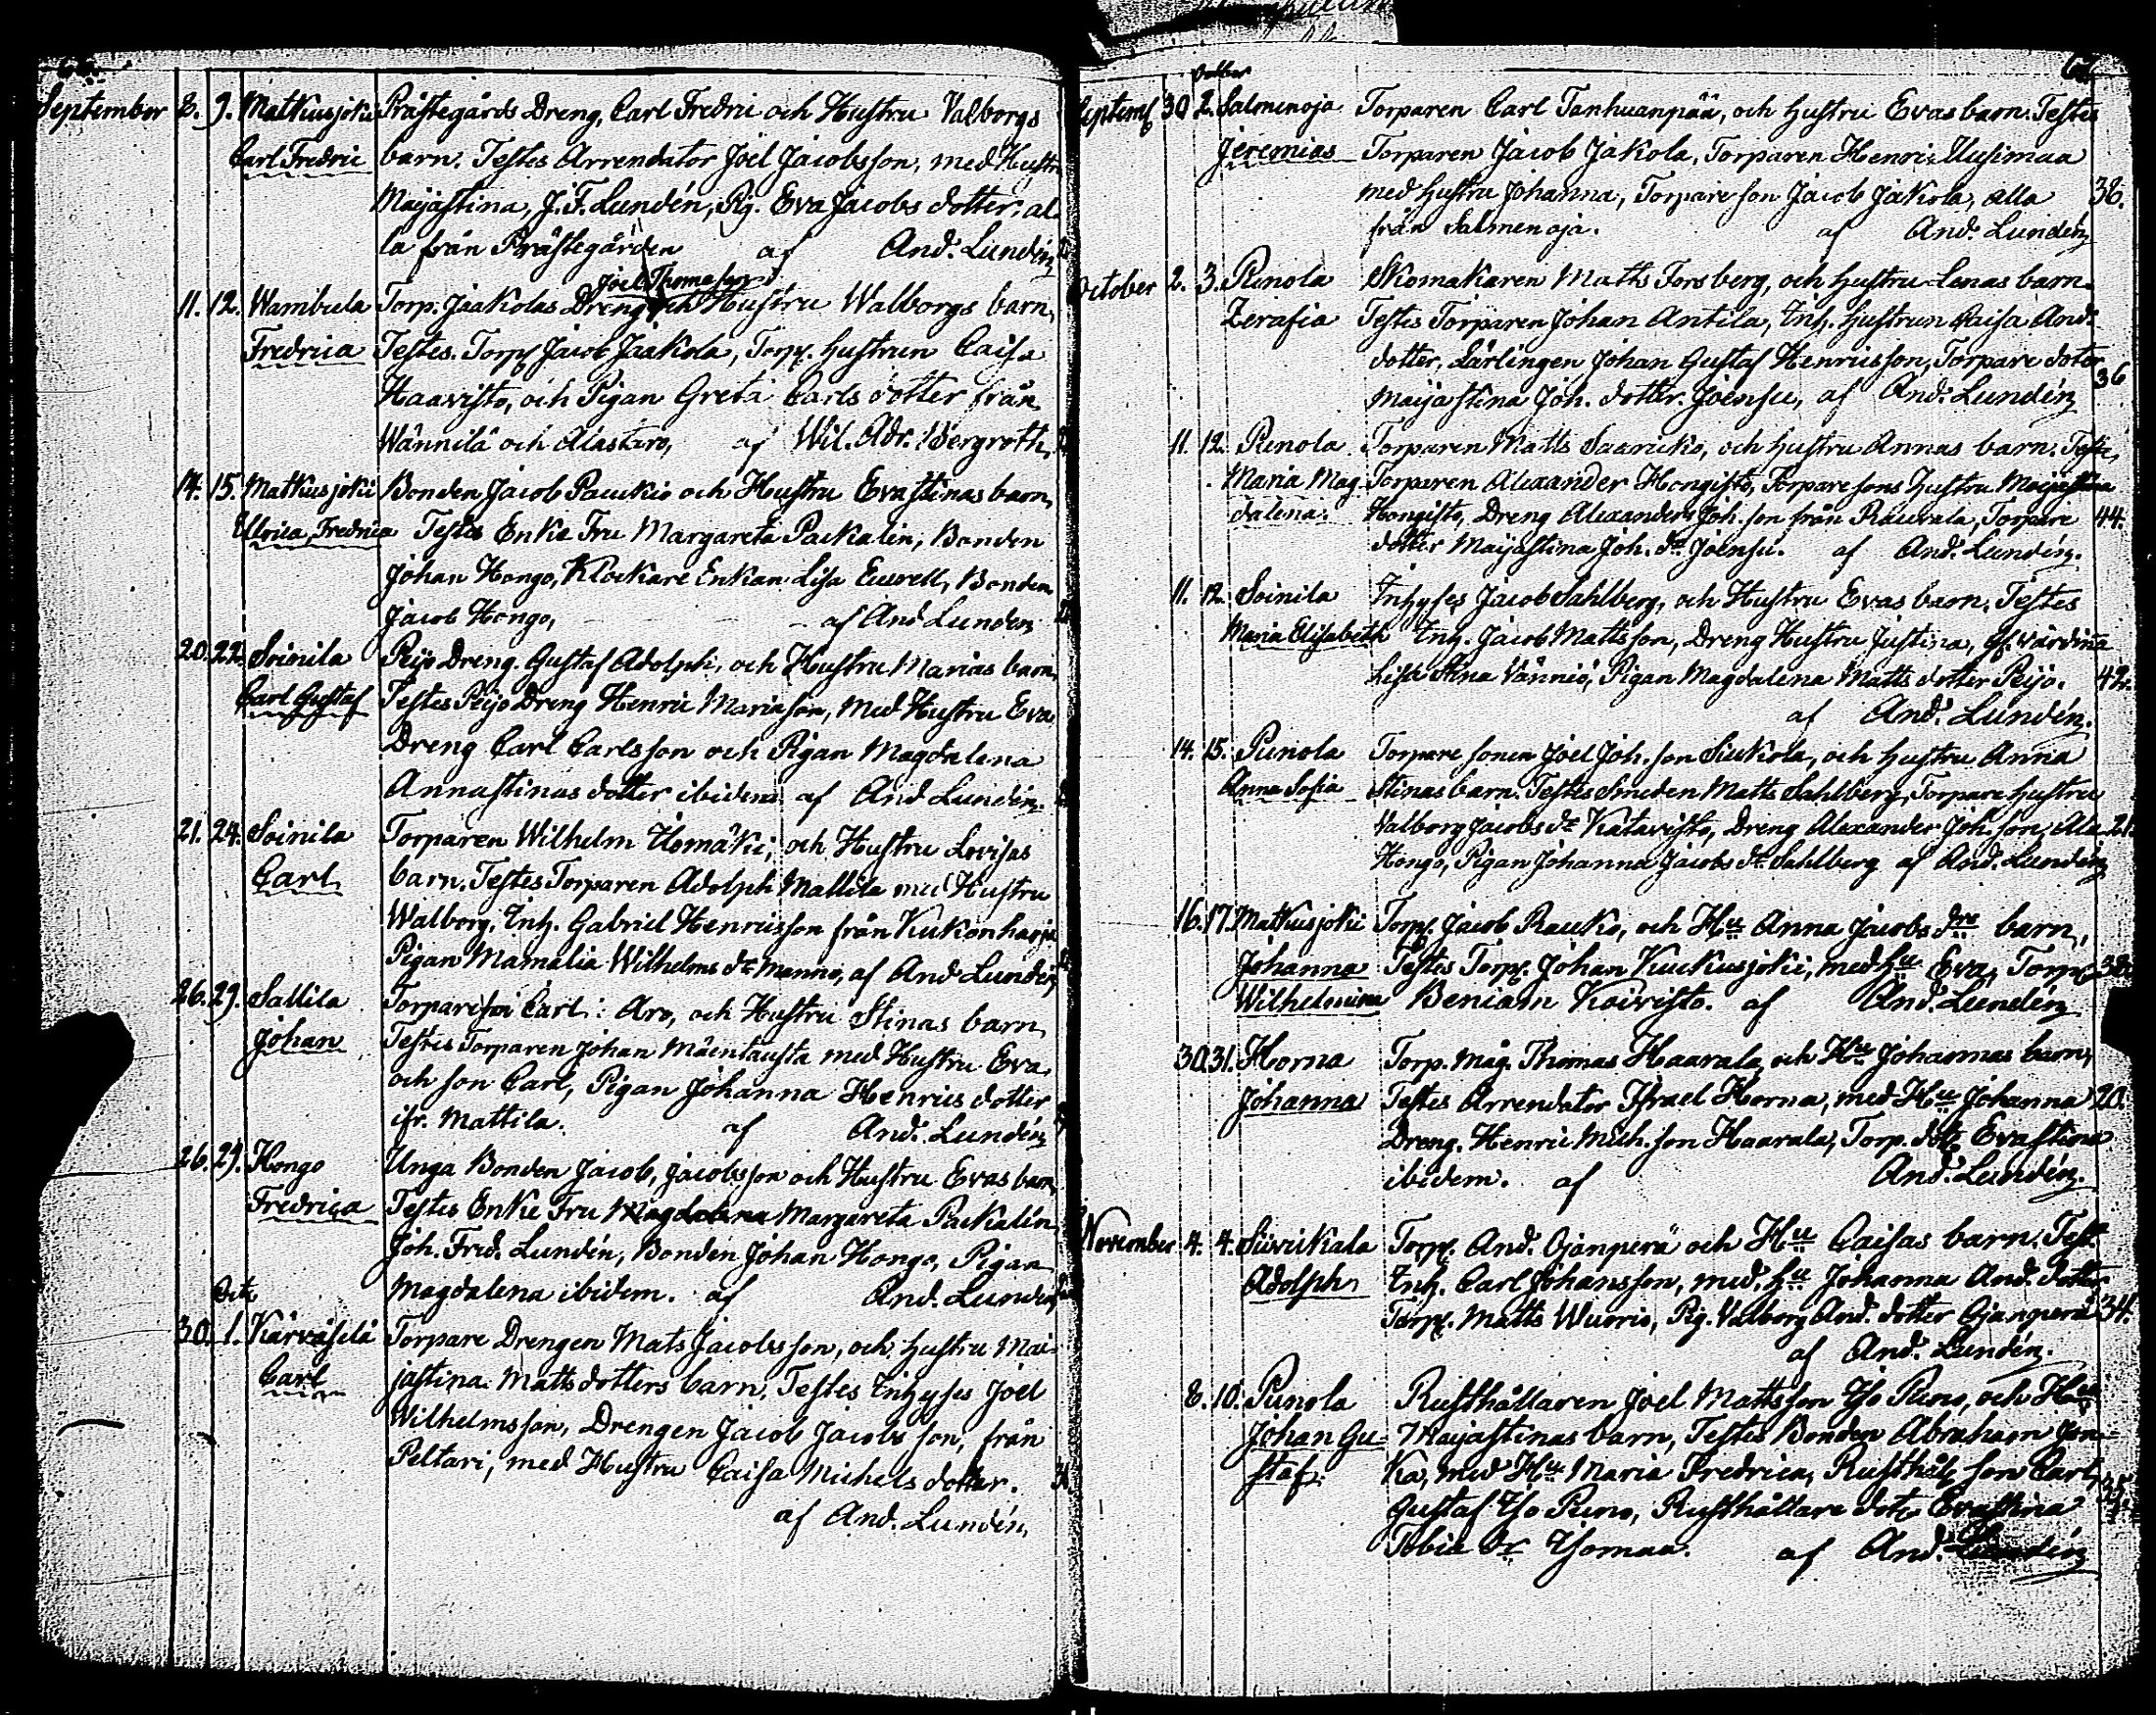 September 8. 9. Matkusjoki Prästegårds Dreng, Carl Fredric och Hustru Valborgs
Carl Fredric barn. Testes Arrendator Joel Jacobsson, med Hustru
Maijastina, J. F. Lundén, Pig. Eva Jacobs dotter, al-
la från Prästegården af And. Lundén
Joel Thomasson
11. 12. Wambula Torp. Jaakolas Dreng och Hustru Walborgs barn,
Fredrica Testes. Torp. Jacob Jaakola, Torp. hustrun Caisa
Haavisto, och Pigan Greta Carls dotter från
Wännilä och Alastaro, af Wil. Adr. Bergroth,
14. 15. Matkusjoki Bonden Jacob Paukio och Hustru Evastinas barn,
Ulrica Fredrica Testes Enke Fru Margareta Packalén, Bonden
Johan Hongo, Klockare Enkan Lisa Eurell, Bonden
Jacob Hongo, af And Lundén
20. 22. Soinila Peijo Dreng. Gustaf Adolph, och Hustru Marias barn,
Carl Gustaf Testes Peijo Dreng Henric Mariason, med Hustru Eva
Dreng Carl Carlsson och Pigan Magdalena
Annastinas dotter ibidem af And Lundén.
21. 24. Soinila Torparen Wilhelm Ylomäki, och Hustru Lovisas
Carl barn. Testes Torparen Adolph Mallila med Hustru
Walborg, Inh. Gabriel Henricsson från Kukonharja
Pigan Mamalia Wilhelms dr Manno, af And Lundén
26. 29. Sallila Torpareson Carl Aro, och Hustru Stinas barn
Johan Testes Torparen Johan Mäentausta med Hustru Eva
och son Carl, Pigan Johanna Henrics dotter
ifr. Mattila. af And. Lundén
26. 29. Hongo Unga Bonden Jacob, Jacobsson och Hustru Evas barn,
Fredrica Testes Enke Fru Magdalena Margareta Packalén
Joh. Fred. Lundén, Bonden Johan Hongo, Pigan
Magdalena ibidem. af And. Lundén
Oct.
30. 1. Kärväselä Torpare Drengen Mats Jacobsson, och hustru Mai-
Carl jastina Matts dotters barn, Testes Inhyses Joel
Wilhelmsson, Drengen Jacob Jacobs son, från
Peltari, med Hustru Caisa Michels dotter. 31
af And. Lundén
October
Septemb 30 2. Salmenoja Torparen Carl Tanhuanpää, och hustru Evas barn. Testes
Jeremias Torparen Jacob Jakola, Torparen Henric Uusimaa
med hustru Johanna, Torpare son Jacob Jakola, alla 38.
från Salmenoja. af And. Lundén
October 2. 3. Punola Skomakaren Matts Forsberg, och hustru Lenas barn.
Zerafia Testes Torparen Johan Antila, Inh. hustrun Caisa And.
dotter, Lärlingen Johan Gustaf Henricsson, Torpare doter
Maijastina Joh. dotter. Joensu, af And. Lundén 36
11. 12. Punola Torparen Matts Saaricko, och hustru Annas barn. Testes,
Maria Mag- Torparen Alexander Hongisto, Torpare sons hustru Maijastina
dalena. Hongisto, Dreng Alexander Joh. son från Rauvala, Torpare 44.
dotter Maijastina Joh. dr Joensu. af And. Lundén.
11. 12. Soinila Inhyses Jacob Sahlberg, och Hustru Evas barn, Testes
Maria Elisabeth Inh. Jacob Mattsson, Dreng Hustru Justina, Gl. värdina
Lisa Stina Vänniö, Pigan Magdalena Matts dotter Peijo. 42.
af And. Lundén.
14. 15. Punola Torpare sonen Joel Joh. son Siukola, och hustru Anna
Anna Sofia Stinas barn. Testes Smeden Matts Sahlberg, Torpare hustru
Valborg Jacobs dr Katavisto, Dreng Alexander Joh. son, Ala 21.
Hongo, Pigan Johanna Jacobs dr Sahlberg af And. Lundén
16. 17. Matkusjoki Torp. Jacob Rauko, och Hu Anna Jacobs drs barn,
Johanna Testes Torp. Johan Kuukusjoki, med hu Eva, Torp. 38.
Wilhelmina Beniam Koivisto. af And. Lundén
30. 31. Horna Torp. Måg. Thomas Haarala, och Hu Johannas barn,
Johanna Testes Arrendator Israel Horna, med Hu Johanna 20.
Dreng. Henric Mich. son Haarala, Torp. dott Evastina
ibidem. af And. Lundén.
November 4. 4. Suvukala Torp. And. Ojanperä och Hu Caisas barn. Test
Adolph Inh. Carl Johansson, med. hu Johanna And. dotter
Torp. Matts Wuorio, Pig. Valborg And. dotter Ojanperä 34.
af And. Lundén.
8. 10. Punola Rusthållaren Joel Mattsson Iso Puno, och Hu
Johan Gu- Maijastinas barn, Testes Bonden Abraham Jon-
staf. ka, med Hu Maria Fredrica, Rusthåll son Carl 35
Gustaf Iso Puno, Rusthållare dott Evastina
Tobia dr Isomaa. af And. Lundén